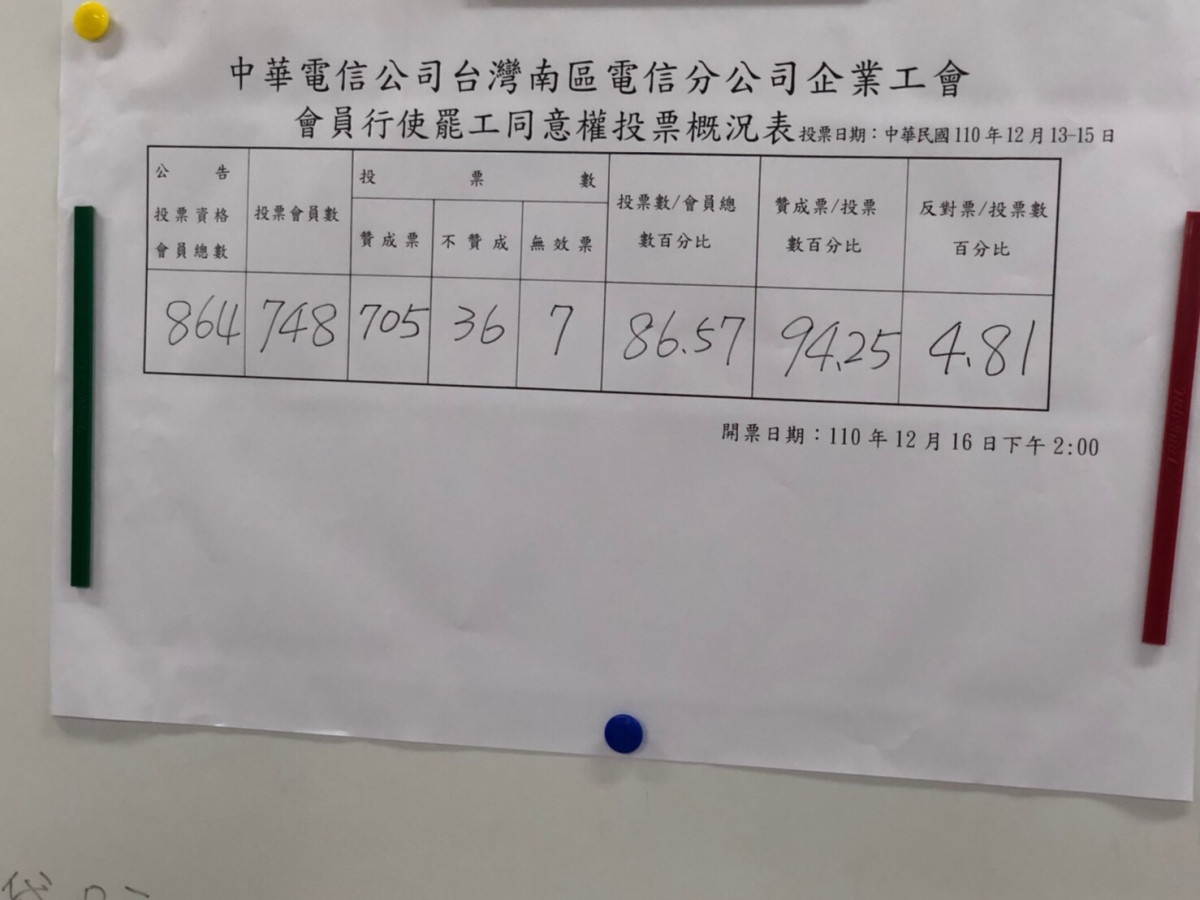 中華電信公司台灣南區電信分公司企業工會
會員行使罷工同意權投票概況表 投票日期：中華民國110年12月13-15日
公告
投票資格
會員總數
投票會員數
投票數
贊成票 不贊成 無效票
投票數/會員總
數百分比
贊成票/投票
數百分比
反對票/投票數
百分比
864 748 705 36 7 86.57 94.25 4.81
開票日期：110年12月16日下午2:00